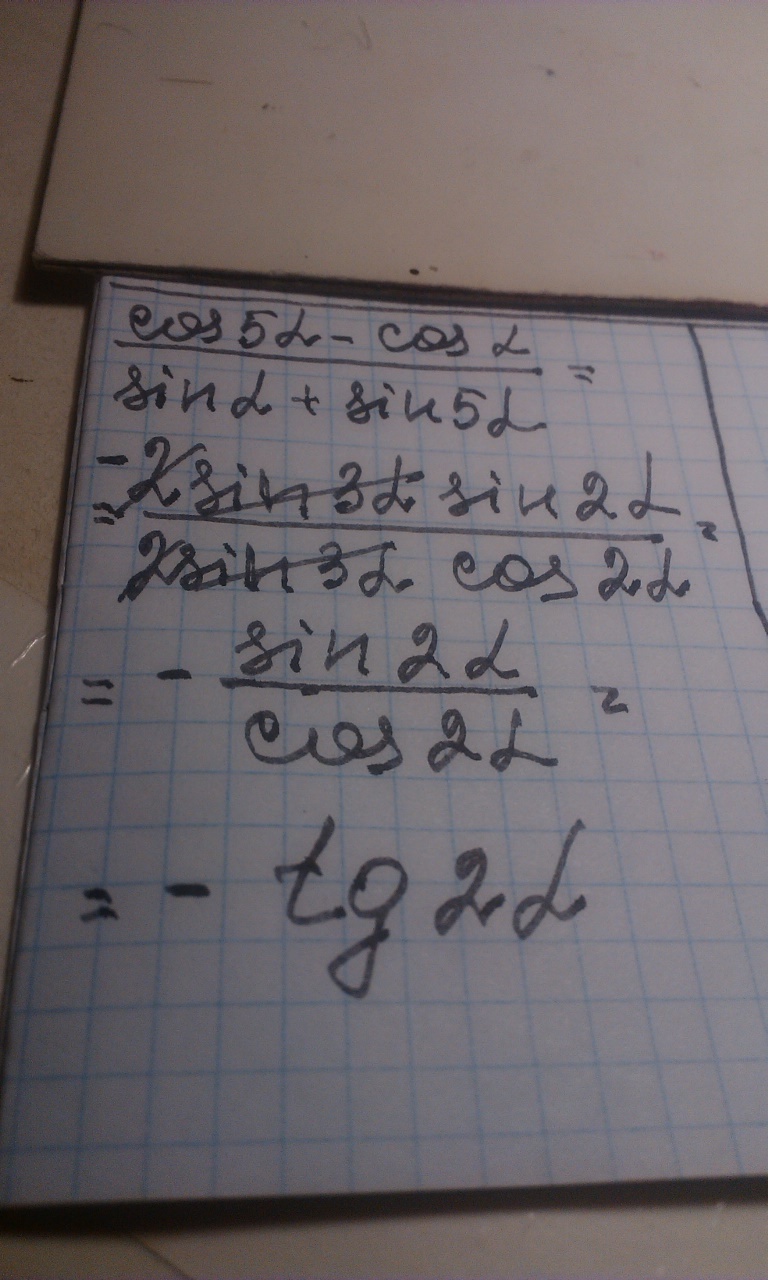 cos5α - cosα
sinα + sin5α =
-2sin3α sin2α
= 2sin3α cos2α =
= - sin2α =
cos2α
= - tg2α